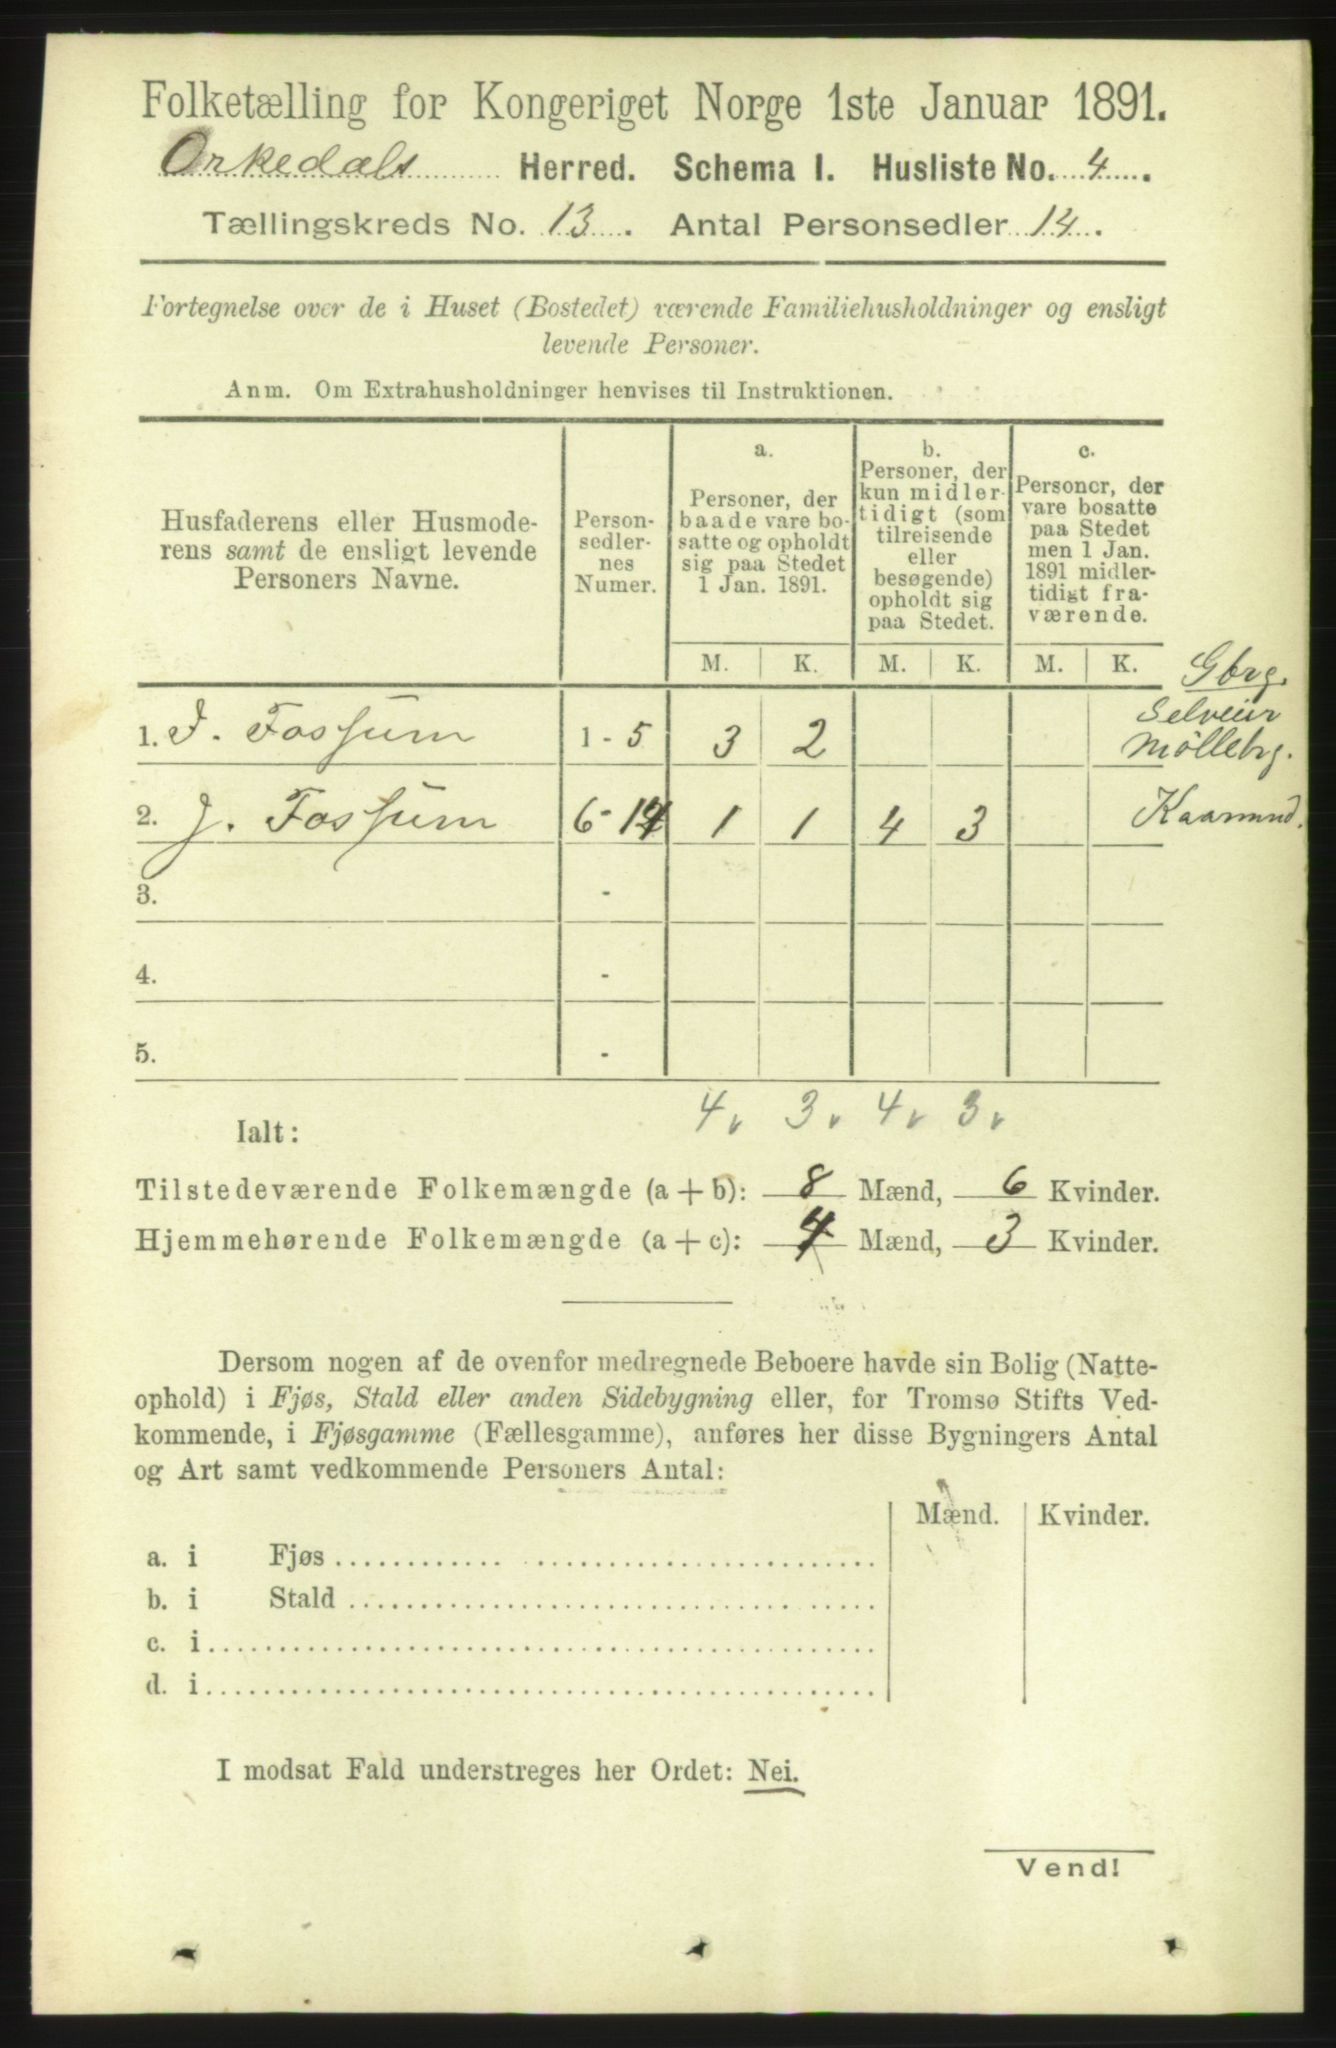 Folketælling for Kongeriget Norge 1ste Januar 1891.
Orkedals Herred. Schema I. Husliste No. 4.
Tællingskreds No. 13. Antal Personsedler 14.
Fortegnelse over de i Huset (Bostedet) værende Familiehusholdninger og ensligt
levende Personer.
Anm. Om Extrahusholdninger henvises til Instruktionen.
Husfaderens eller Husmode-
rens samt de ensligt levende
Personers Navne.
Person-
sedler-
nes
Numer.
a.
Personer, der
baade vare bo-
satte og opholdt
sig paa Stedet
1 Jan. 1891.
b.
Personer, der
kun midler-
tidigt (som
tilreisende
eller
besøgende)
opholdt sig
paa Stedet.
c.
Personer, der
vare bosatte
paa Stedet
men 1 Jan.
1891 midler-
tidigt fra-
værende.
M. K. M. K. M. K.
Gbrg.
Selveier
Mölleb​rg.
1. J. Fossum 1-5 3 2
2. J. Fossum 6-14 1 1 4 3
3. -
4. -
5. -
4 3 4 3
Ialt:
Tilstedeværende Folkemængde (a + b): 8 Mænd, 6 Kvinder.
Hjemmehørende Folkemængde (a + c): 4 Mænd, 3 Kvinder.
Dersom nogen af de ovenfor medregnede Beboere havde sin Bolig (Natte-
ophold) i Fjøs, Stald eller anden Sidebygning eller, for Tromsø Stifts Ved-
kommende, i Fjøsgamme (Fællesgamme), anføres her disse Bygningers Antal
og Art samt vedkommende Personers Antal:
Mænd. Kvinder.
a. i Fjøs
b. i Stald
c. i
d. i
I modsat Fald understreges her Ordet: Nei.
Vend!